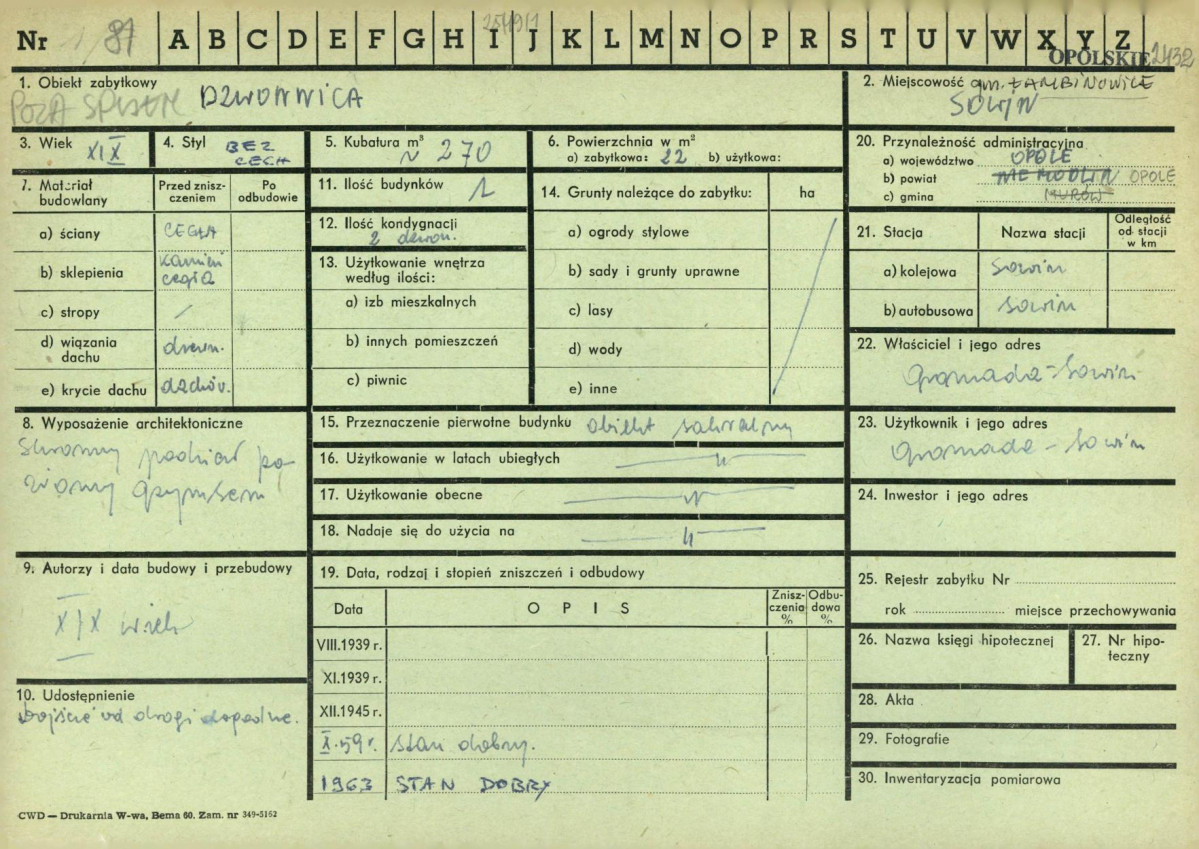 Nr 1/87 A B C D E F G H I J K L M N O P R S T U V W X Y Z
OPOLSKIE 2432
1. Obiekt zabytkowy
POZA SPISEM DZWONNICA
2. Miejscowość gm. ŁAMBINOWICE
SOWIN
3. Wiek XIX
4. Styl BEZ
CECH
5. Kubatura m³
~ 270
6. Powierzchnia w m²
a) zabytkowa: 22 b) użytkowa:
20. Przynależność administracyjna
a) województwo OPOLE
b) powiat NIEMODLIN OPOLE
c) gmina MURÓW
7. Materiał
budowlany
Przed znisz-
czeniem
Po
odbudowie
a) ściany CEGŁA
b) sklepienia kamień
cegła
c) stropy /
d) wiązania
dachu drewn.
e) krycie dachu dachów.
11. Ilość budynków 1
12. Ilość kondygnacji
2 dzwon.
13. Użytkowanie wnętrza
według ilości:
a) izb mieszkalnych
b) innych pomieszczeń
c) piwnic
14. Grunty należące do zabytku: ha
a) ogrody stylowe
b) sady i grunty uprawne
c) lasy
d) wody
e) inne
21. Stacja Nazwa stacji
Odległość
od stacji
w km
a) kolejowa Sowin
b) autobusowa Sowin
22. Właściciel i jego adres
Gromada - Sowin
8. Wyposażenie architektoniczne
skromny podział po-
ziomy gzymsem
15. Przeznaczenie pierwotne budynku obiekt sakralny
16. Użytkowanie w latach ubiegłych — " —
17. Użytkowanie obecne — " —
18. Nadaje się do użycia na — " —
23. Użytkownik i jego adres
Gromada - Sowin
24. Inwestor i jego adres
9. Autorzy i data budowy i przebudowy
XIX wiek
10. Udostępnienie
Dojście od drogi dogodne.
19. Data, rodzaj i stopień zniszczeń i odbudowy
Data OPIS
Znisz-
czenia
%
Odbu-
dowa
%
VIII.1939 r.
XI.1939 r.
XII.1945 r.
X.59 r. stan dobry.
1963 STAN DOBRY
25. Rejestr zabytku Nr
rok miejsce przechowywania
26. Nazwa księgi hipotecznej
27. Nr hipo-
teczny
28. Akta
29. Fotografie
30. Inwentaryzacja pomiarowa
CWD — Drukarnia W-wa, Bema 60. Zam. nr 349-5162